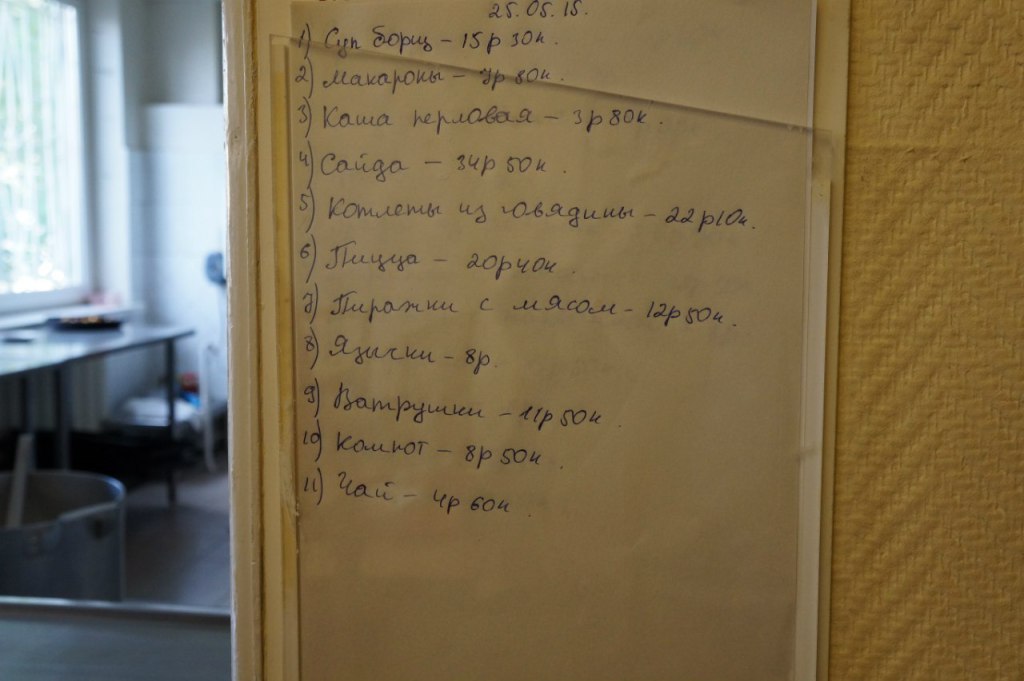 25.05.15.
1) Суп борщ - 15р 30к.
2) Макароны - 7р 80к.
3) Каша перловая - 3р 80к.
4) Сайда - 34р 50к.
5) Котлеты из говядины - 22р10к.
6) Пицца - 20р40к.
7) Пиражки с мясом - 12р50к.
8) Язички - 8р.
9) Ватрушки - 11р50к.
10) Компот - 8р50к.
11) Чай - 4р 60к.